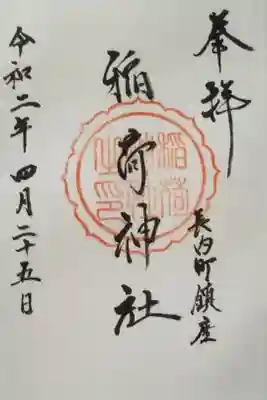 奉拝
長内町鎮座
稲荷神社
令和二年四月二十五日